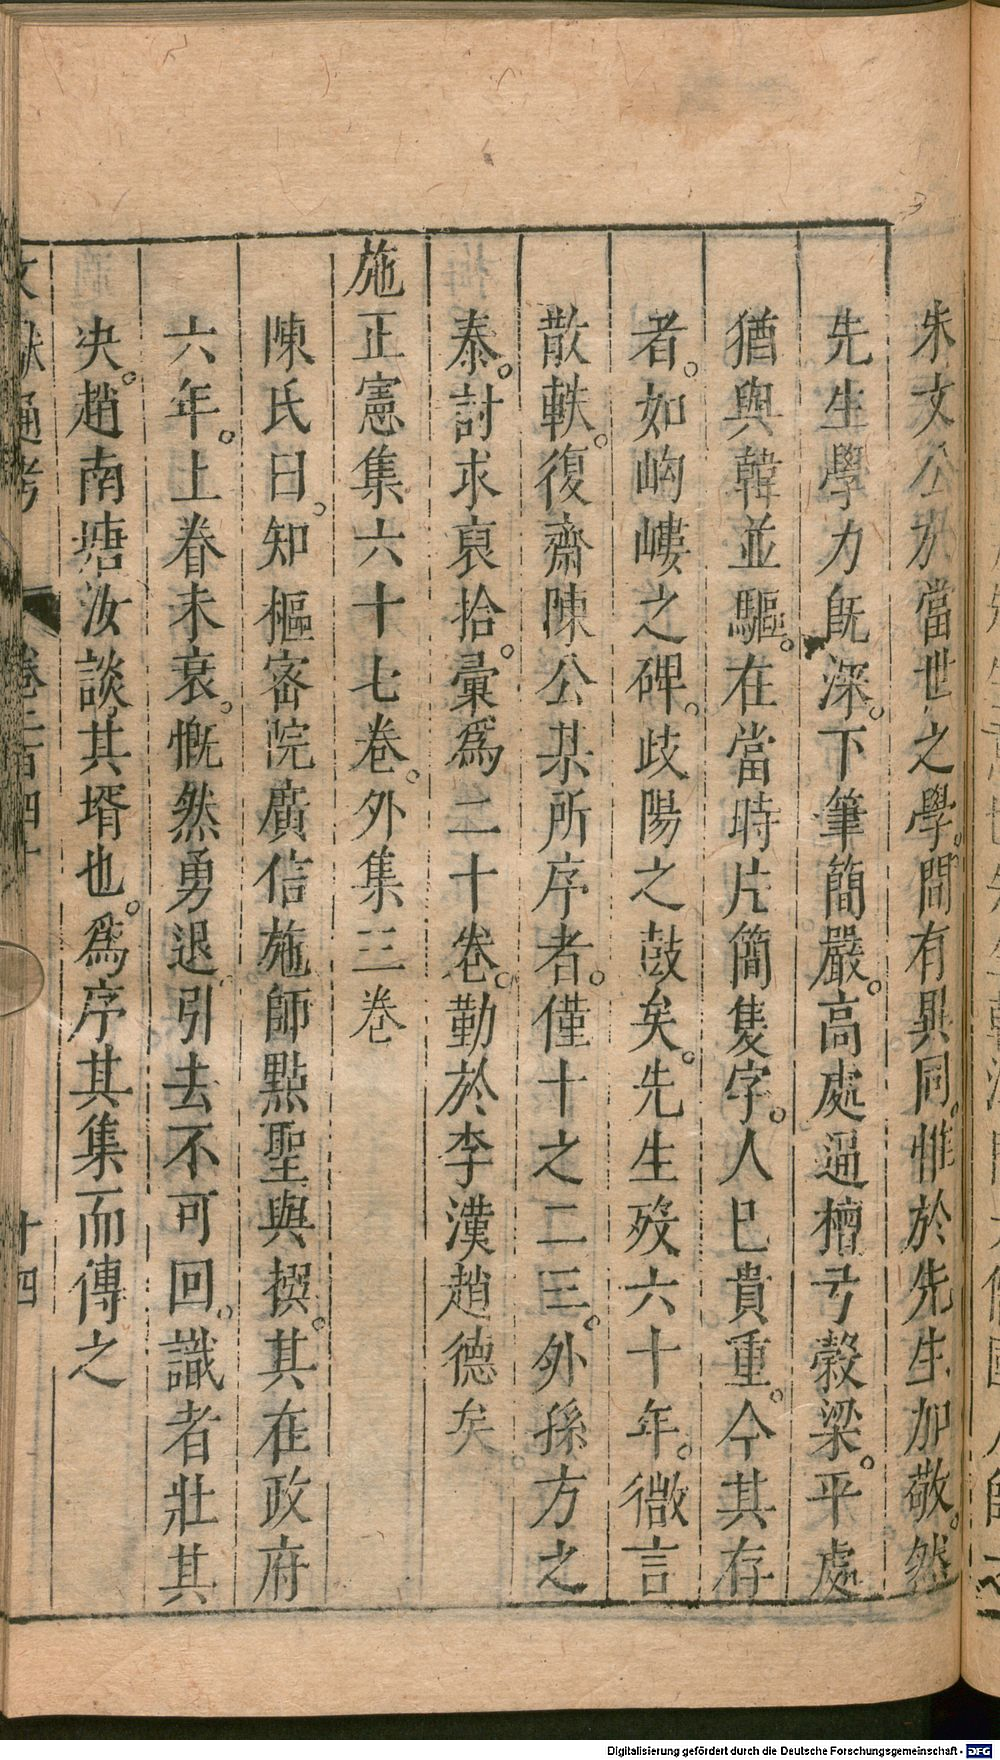 朱文公於當世之學。間有異同。惟於先生加敬。然
先生學力既深。下筆簡嚴。高處逼檀弓穀梁。平處
猶與韓並驅。在當時片簡隻字。人已貴重。今其存
者。如岣嶁之碑。歧陽之鼓矣。先生歿六十年。微言
散軼。復齋陳公某所序者。僅十之二三。外孫方之
泰。討求裒拾。彙爲二十卷。勤於李漢趙德矣。
施正憲集六十七卷。外集三卷
陳氏曰。知樞密院廣信施師點聖與撰。其在政府
六年。上眷未衰。慨然勇退。引去不可回。識者壯其
决。趙南塘汝談其壻也。爲序其集而傳之
文獻通考 卷二百四十 十四
Digitalisierung gefördert durch die Deutsche Forschungsgemeinschaft - DFG